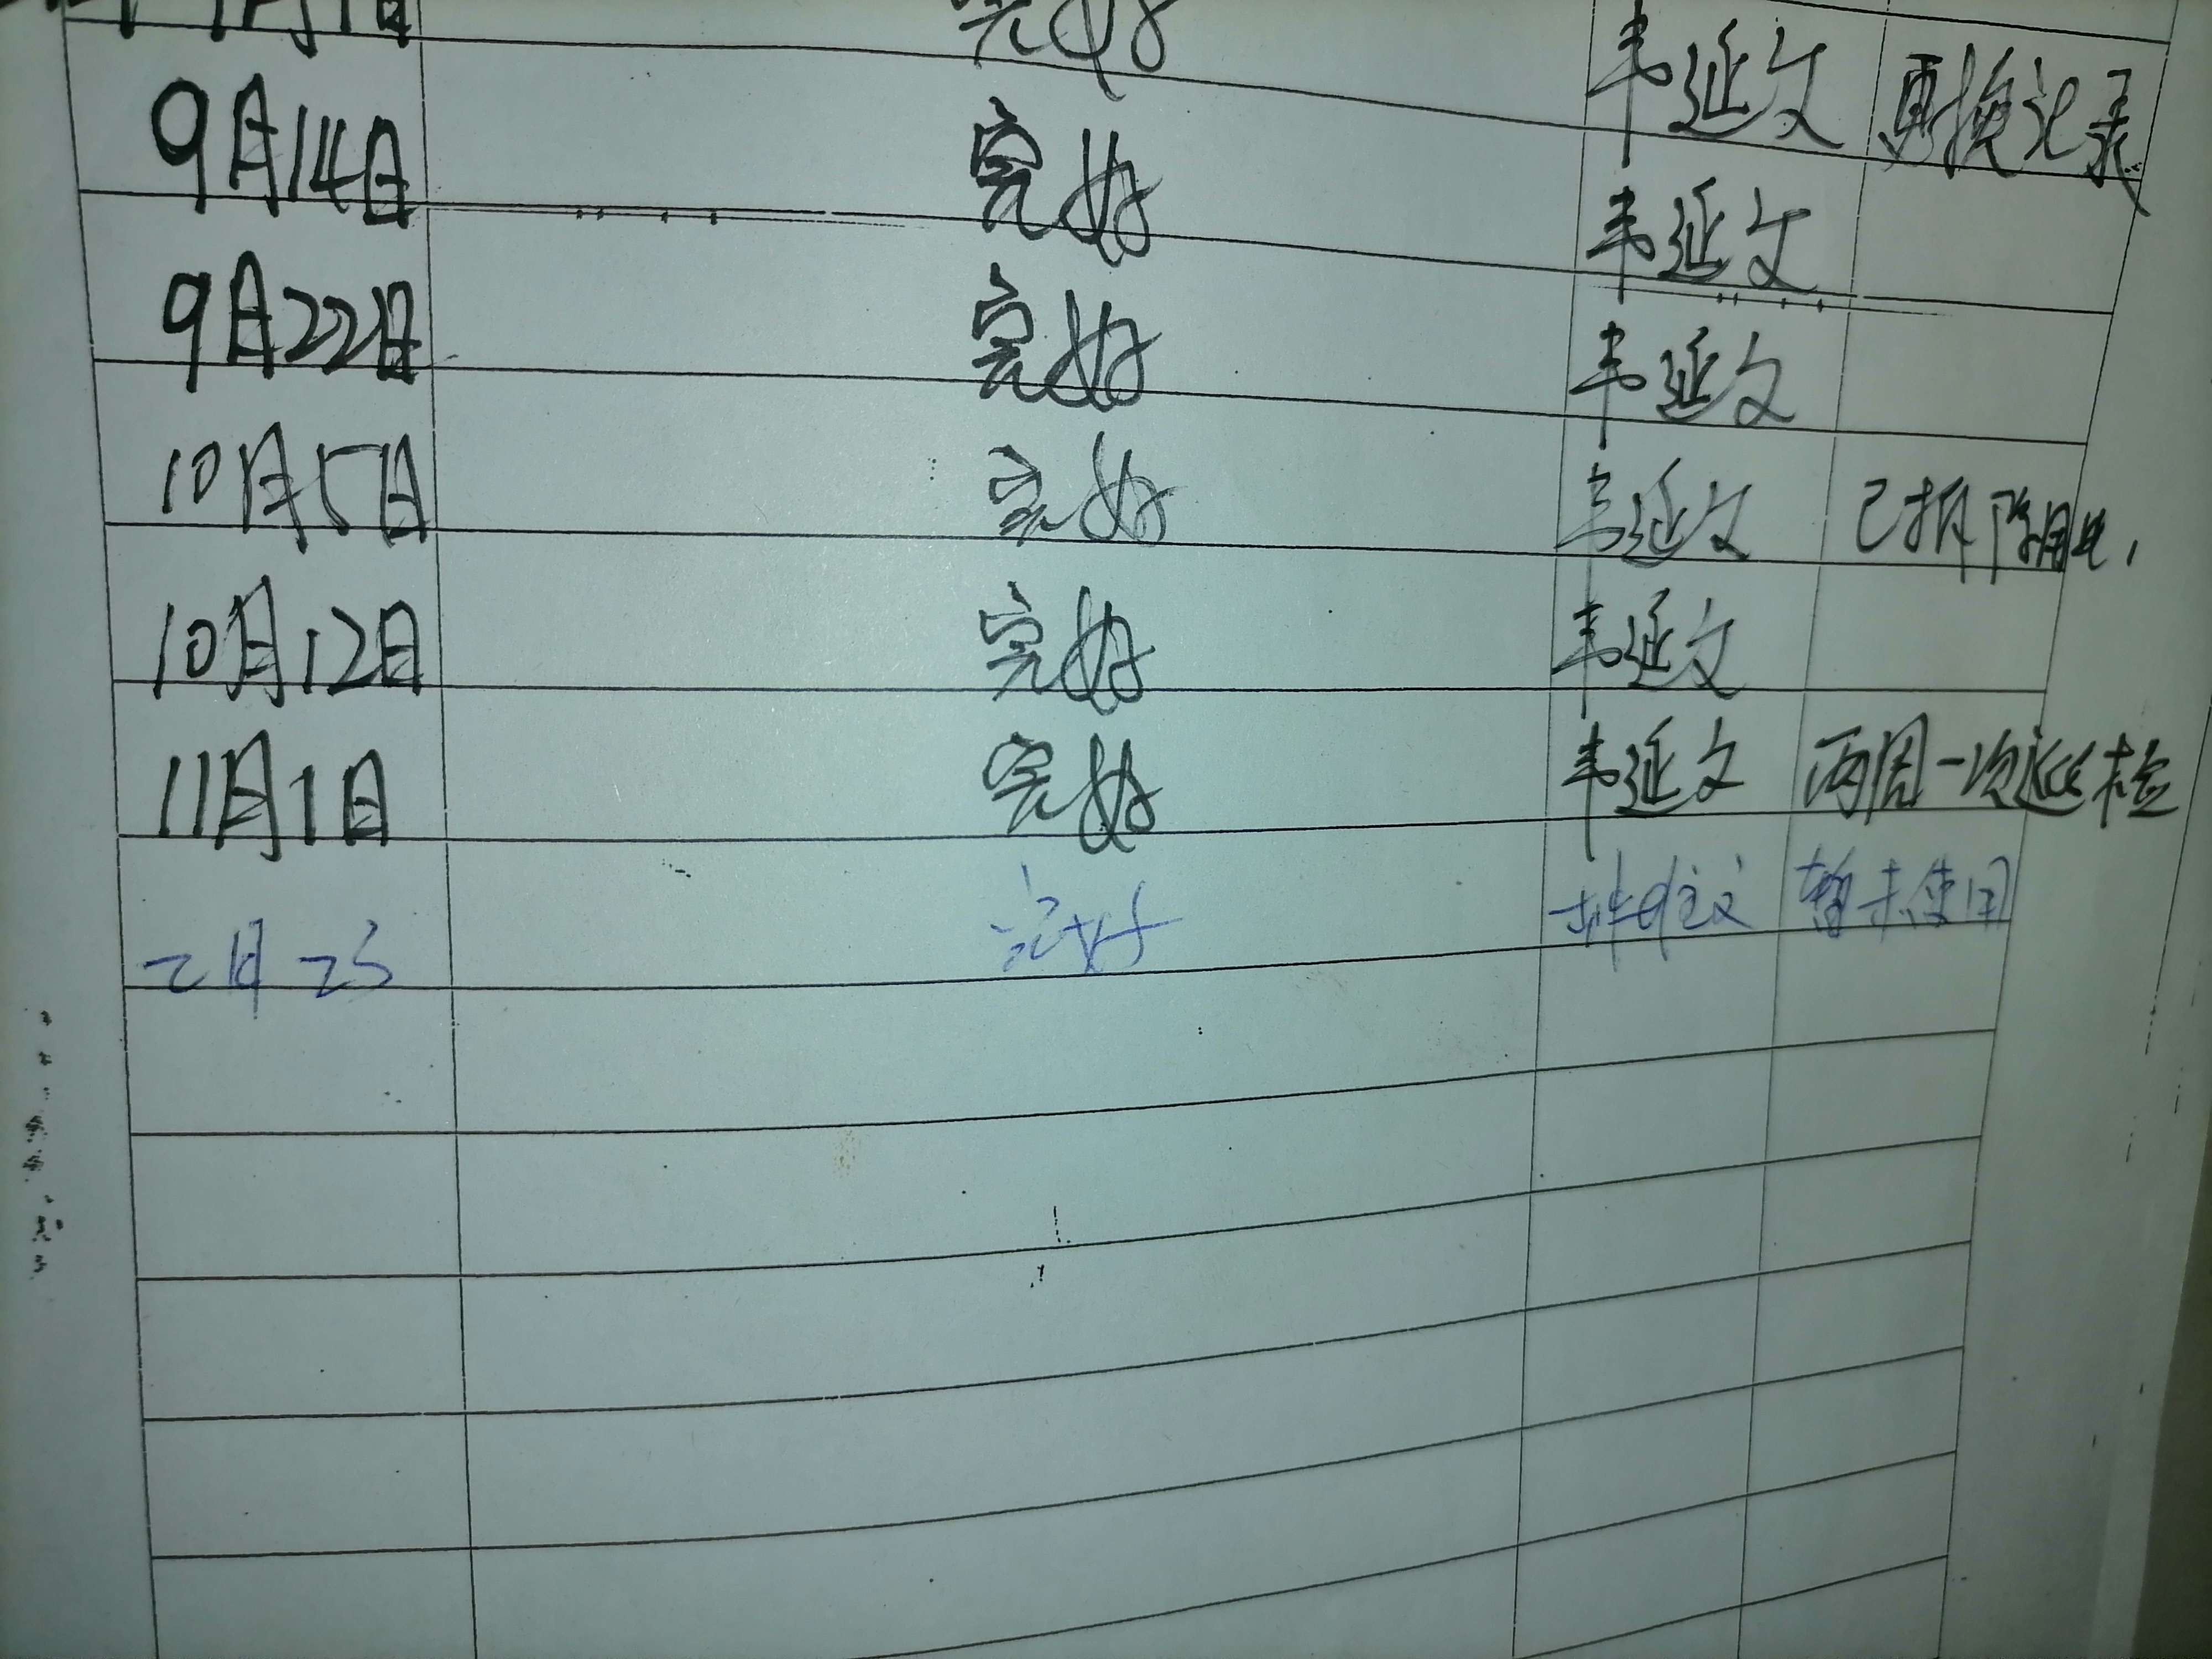 完好 韦延文 更换记录
9月14日 完好 韦延文
9月22日 完好 韦延文
10月5日 完好 韦延文 已拆除用电,
10月12日 完好 韦延文
11月1日 完好 韦延文 两周一次巡检
二月 完好 暂未使用